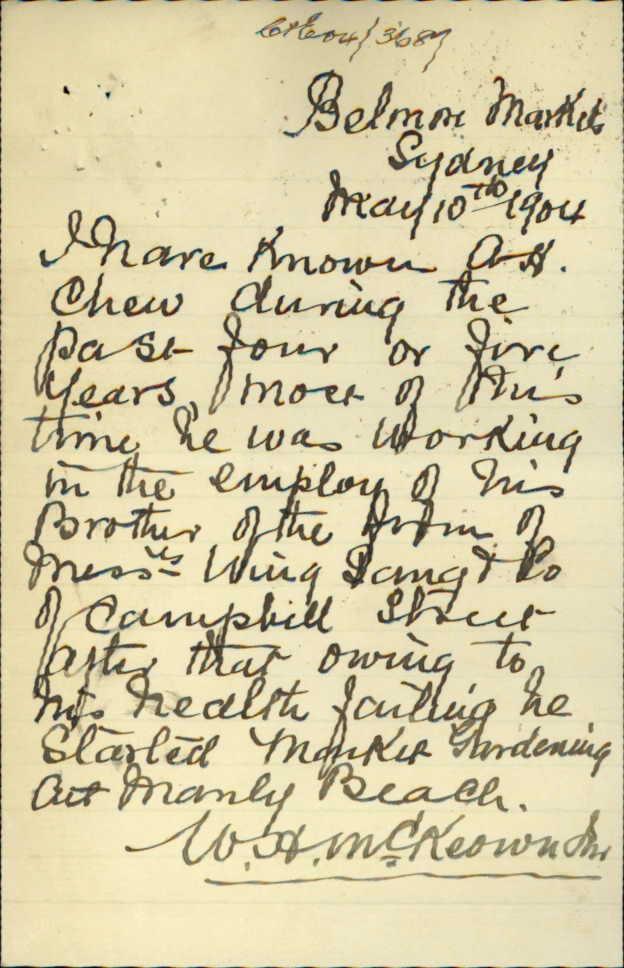 04/3687
Belmore Markets
Sydney
May 10th 1904
I have known A H.
Chew during the
past four or five
years, most of this
time he was working
in the employ of his
Brother of the firm of
Messrs Wing Sang & Co
of Campbell Street
after that owing to
his health failing he
started Market Gardening
at Manly Beach.
W. H. McKeown Jnr